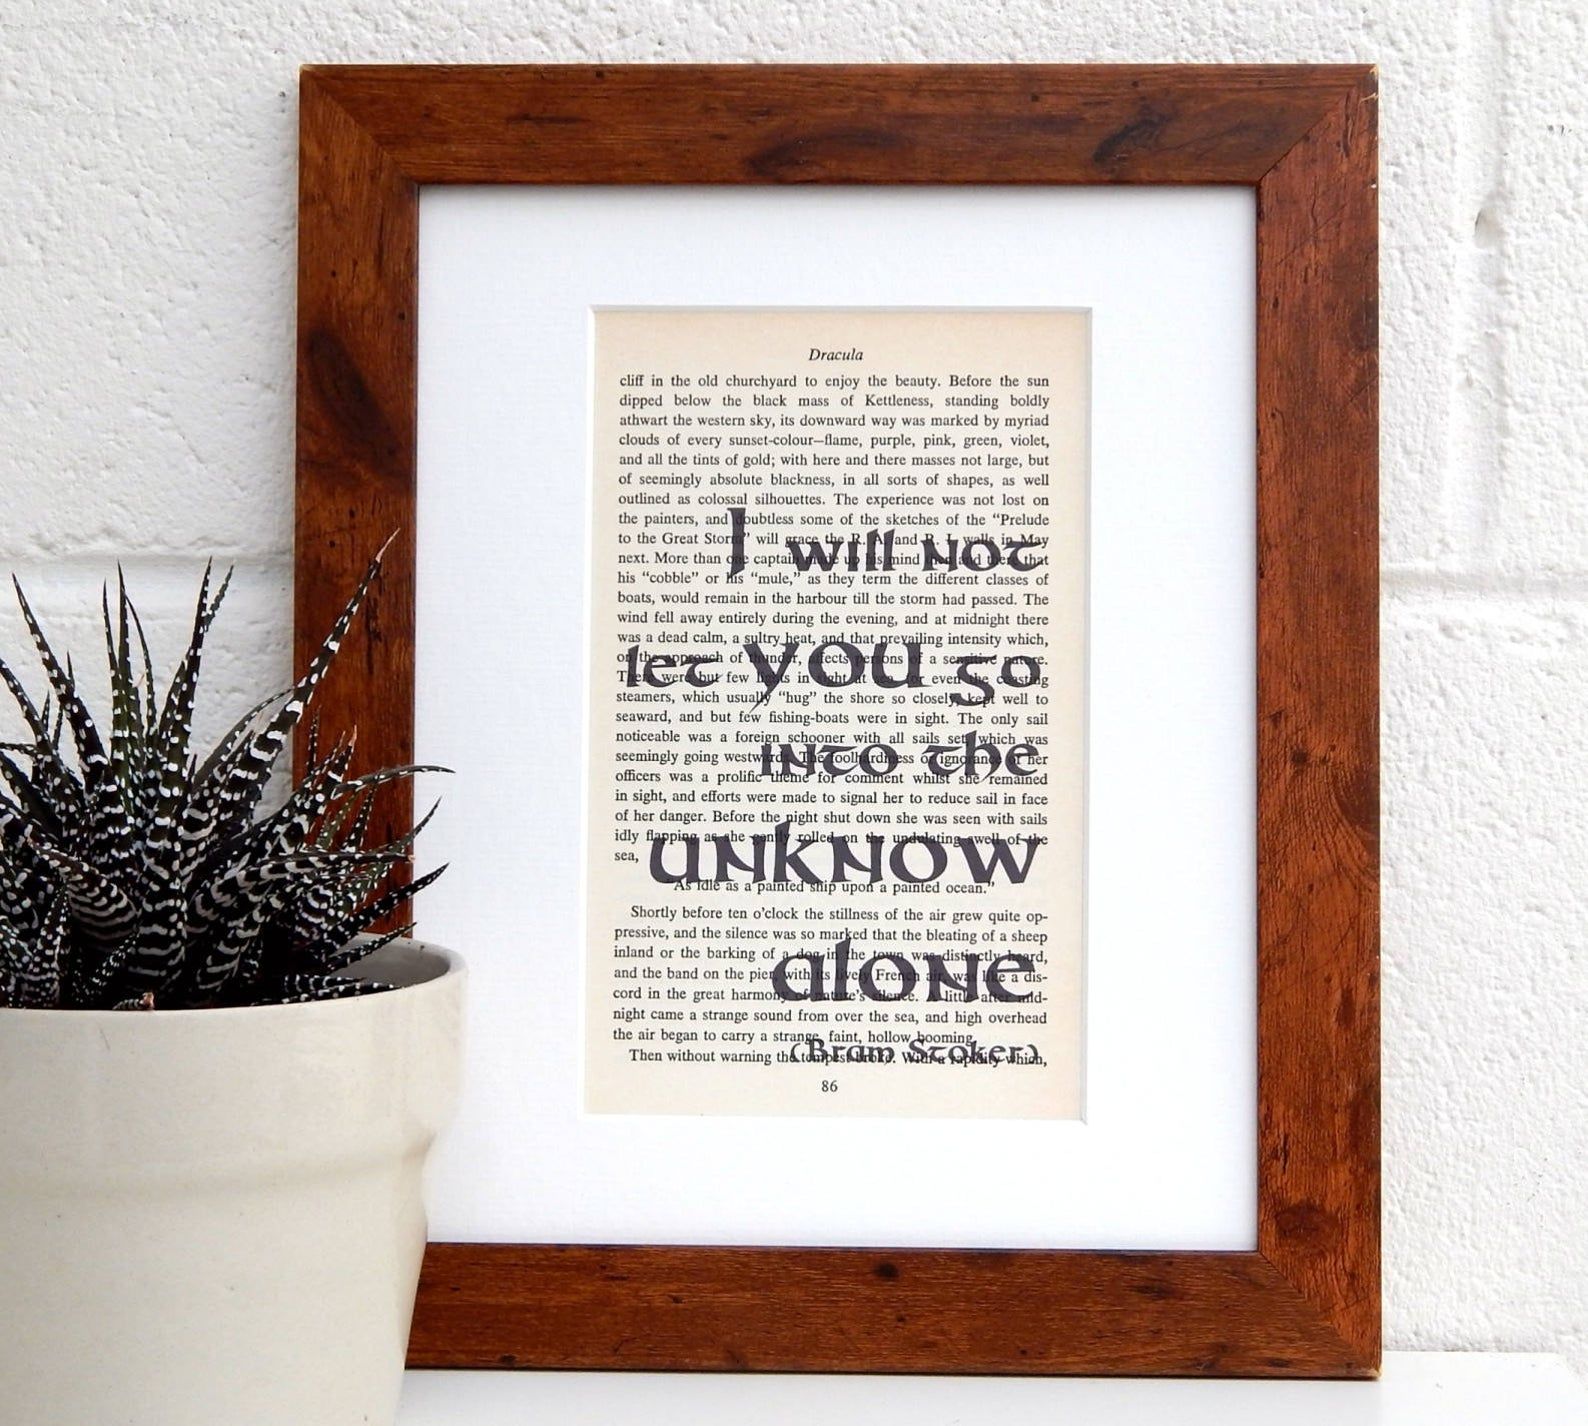 Dracula
cliff in the old churchyard to enjoy the beauty. Before the sun
dipped below the black mass of Kettleness, standing boldly
athwart the western sky, its downward way was marked by myriad
clouds of every sunset-colour—flame, purple, pink, green, violet,
and all the tints of gold; with here and there masses not large, but
of seemingly absolute blackness, in all sorts of shapes, as well
outlined as colossal silhouettes. The experience was not lost on
the painters, and doubtless some of the sketches of the “Prelude
to the Great Storm” will grace the R. A. and R. I. walls in May
next. More than one captain made up his mind then and there that
his “cobble” or his “mule,” as they term the different classes of
boats, would remain in the harbour till the storm had passed. The
wind fell away entirely during the evening, and at midnight there
was a dead calm, a sultry heat, and that prevailing intensity which,
on the approach of thunder, affects persons of a sensitive nature.
There were but few lights in sight at sea, for even the coasting
steamers, which usually “hug” the shore so closely, kept well to
seaward, and but few fishing-boats were in sight. The only sail
noticeable was a foreign schooner with all sails set, which was
seemingly going westwards. The foolhardiness or ignorance of her
officers was a prolific theme for comment whilst she remained
in sight, and efforts were made to signal her to reduce sail in face
of her danger. Before the night shut down she was seen with sails
idly flapping as she gently rolled on the undulating swell of the
sea,
“As idle as a painted ship upon a painted ocean.”
Shortly before ten o’clock the stillness of the air grew quite op-
pressive, and the silence was so marked that the bleating of a sheep
inland or the barking of a dog in the town was distinctly heard,
and the band on the pier, with its lively French air, was like a dis-
cord in the great harmony of nature’s silence. A little after mid-
night came a strange sound from over the sea, and high overhead
the air began to carry a strange, faint, hollow booming.
Then without warning the tempest broke. With a rapidity which,
86
I will not
let you go
into the
unknow
alone
(Bram Stoker)